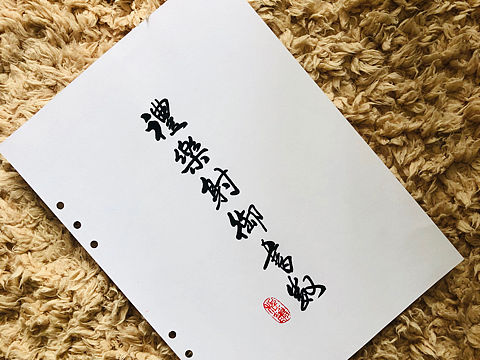 禮樂射御書數